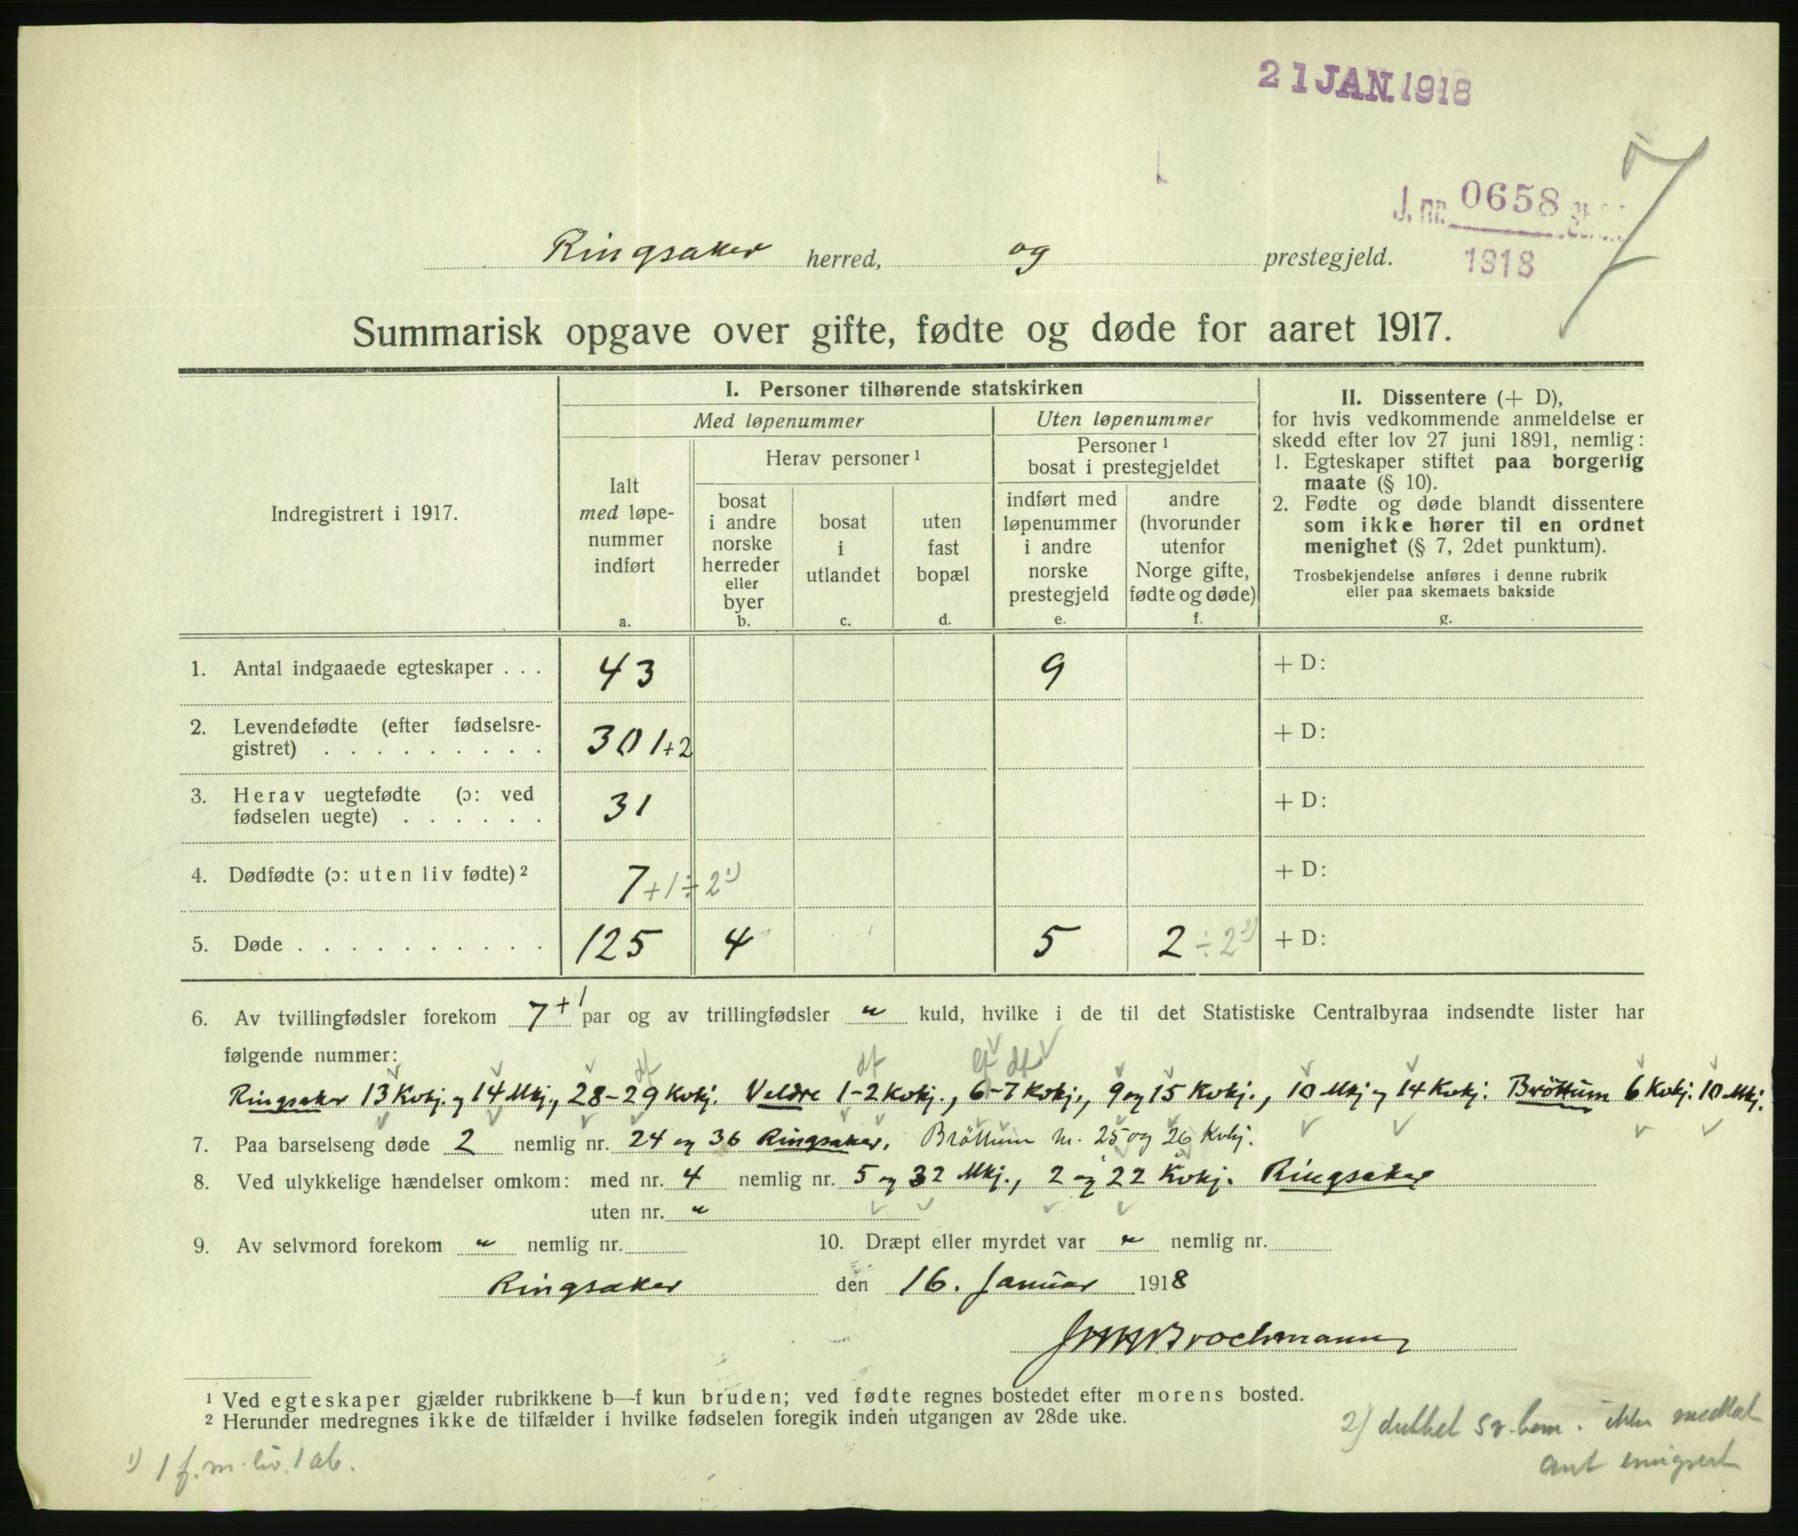 21 JAN. 1918
7
J. nr. 0658
1918
Ringsaker herred, og prestegjeld.
Summarisk opgave over gifte, fødte og døde for aaret 1917.
Indregistrert i 1917.
I. Personer tilhørende statskirken
Med løpenummer
Uten løpenummer
Herav personer ¹
Personer ¹
bosat i prestegjeldet
Ialt
med løpe-
nummer
indført
a.
bosat
i andre
norske
herreder
eller
byer
b.
bosat
i
utlandet
c.
uten
fast
bopæl
d.
indført med
løpenummer
i andre
norske
prestegjeld
e.
andre
(hvorunder
utenfor
Norge gifte,
fødte og døde)
f.
II. Dissentere (+ D),
for hvis vedkommende anmeldelse er
skedd efter lov 27 juni 1891, nemlig:
1. Egteskaper stiftet paa borgerlig
maate (§ 10).
2. Fødte og døde blandt dissentere
som ikke hører til en ordnet
menighet (§ 7, 2det punktum).
Trosbekjendelse anføres i denne rubrik
eller paa skemaets bakside
g.
1. Antal indgaaede egteskaper . . . 43 9 + D:
2. Levendefødte (efter fødselsre-
gistret) . . . . . . . . . 301+2 + D:
3. Herav uegtefødte (ɔ: ved
fødselen uegte) . . . . . . 31 + D:
4. Dødfødte (ɔ: uten liv fødte) ² 7 +1÷2 ¹) + D:
5. Døde . . . . . . . . . . 125 4 5 2 ÷2 ²) + D:
6. Av tvillingfødsler forekom 7 +1 par og av trillingfødsler " kuld, hvilke i de til det Statistiske Centralbyraa indsendte lister har
følgende nummer:
df df gf df
Ringsaker 13 Kvkj. og 14 Mkj., 28-29 Kvkj. Veldre 1-2 Kvkj., 6-7 Kvkj., 9 og 15 Kvkj., 10 Mkj og 14 Kvkj. Brøttum 6 Kvkj. 10 Mkj.
7. Paa barselseng døde 2 nemlig nr. 24 og 36 Ringsaker. Brøttum nr. 25 og 26 Kvkj.
8. Ved ulykkelige hændelser omkom: med nr. 4 nemlig nr. 5 og 32 Mkj., 2 og 22 Kvkj. Ringsaker
uten nr. "
9. Av selvmord forekom " nemlig nr. 10. Dræpt eller myrdet var " nemlig nr.
Ringsaker den 16. Januar 1918
Brochmann
¹ Ved egteskaper gjælder rubrikkene b—f kun bruden; ved fødte regnes bostedet efter morens bosted.
² Herunder medregnes ikke de tilfælder i hvilke fødselen foregik inden utgangen av 28de uke.
2) dubbel sv. bem. ikke medtat
ant emigrert
1) 1 f. m. liv. 1 ab.